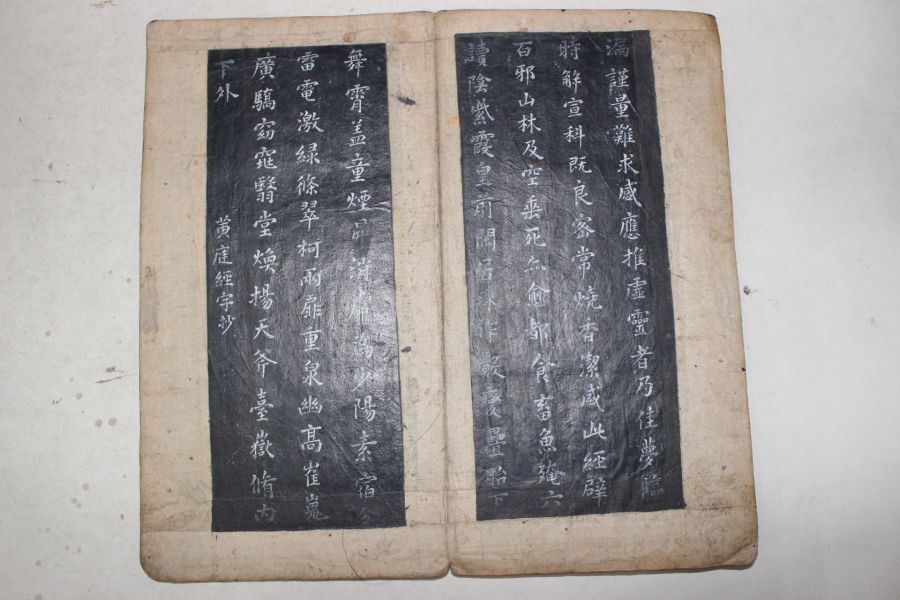 漏謹量難求感應推虛靈者乃佳夢
時解宣科既良密常燒香潔感此經辟
百邪山林及空垂死命愈都食畜魚殗六
讀陰紫霞皇前閤
舞霄盖童煙昇 少陽素宿
雷電激緑篠翠柯兩扉重泉幽高崔嵬
廣驕窈窕翳堂煥揚天斧臺嶽脩内
下外
黃庭經字抄